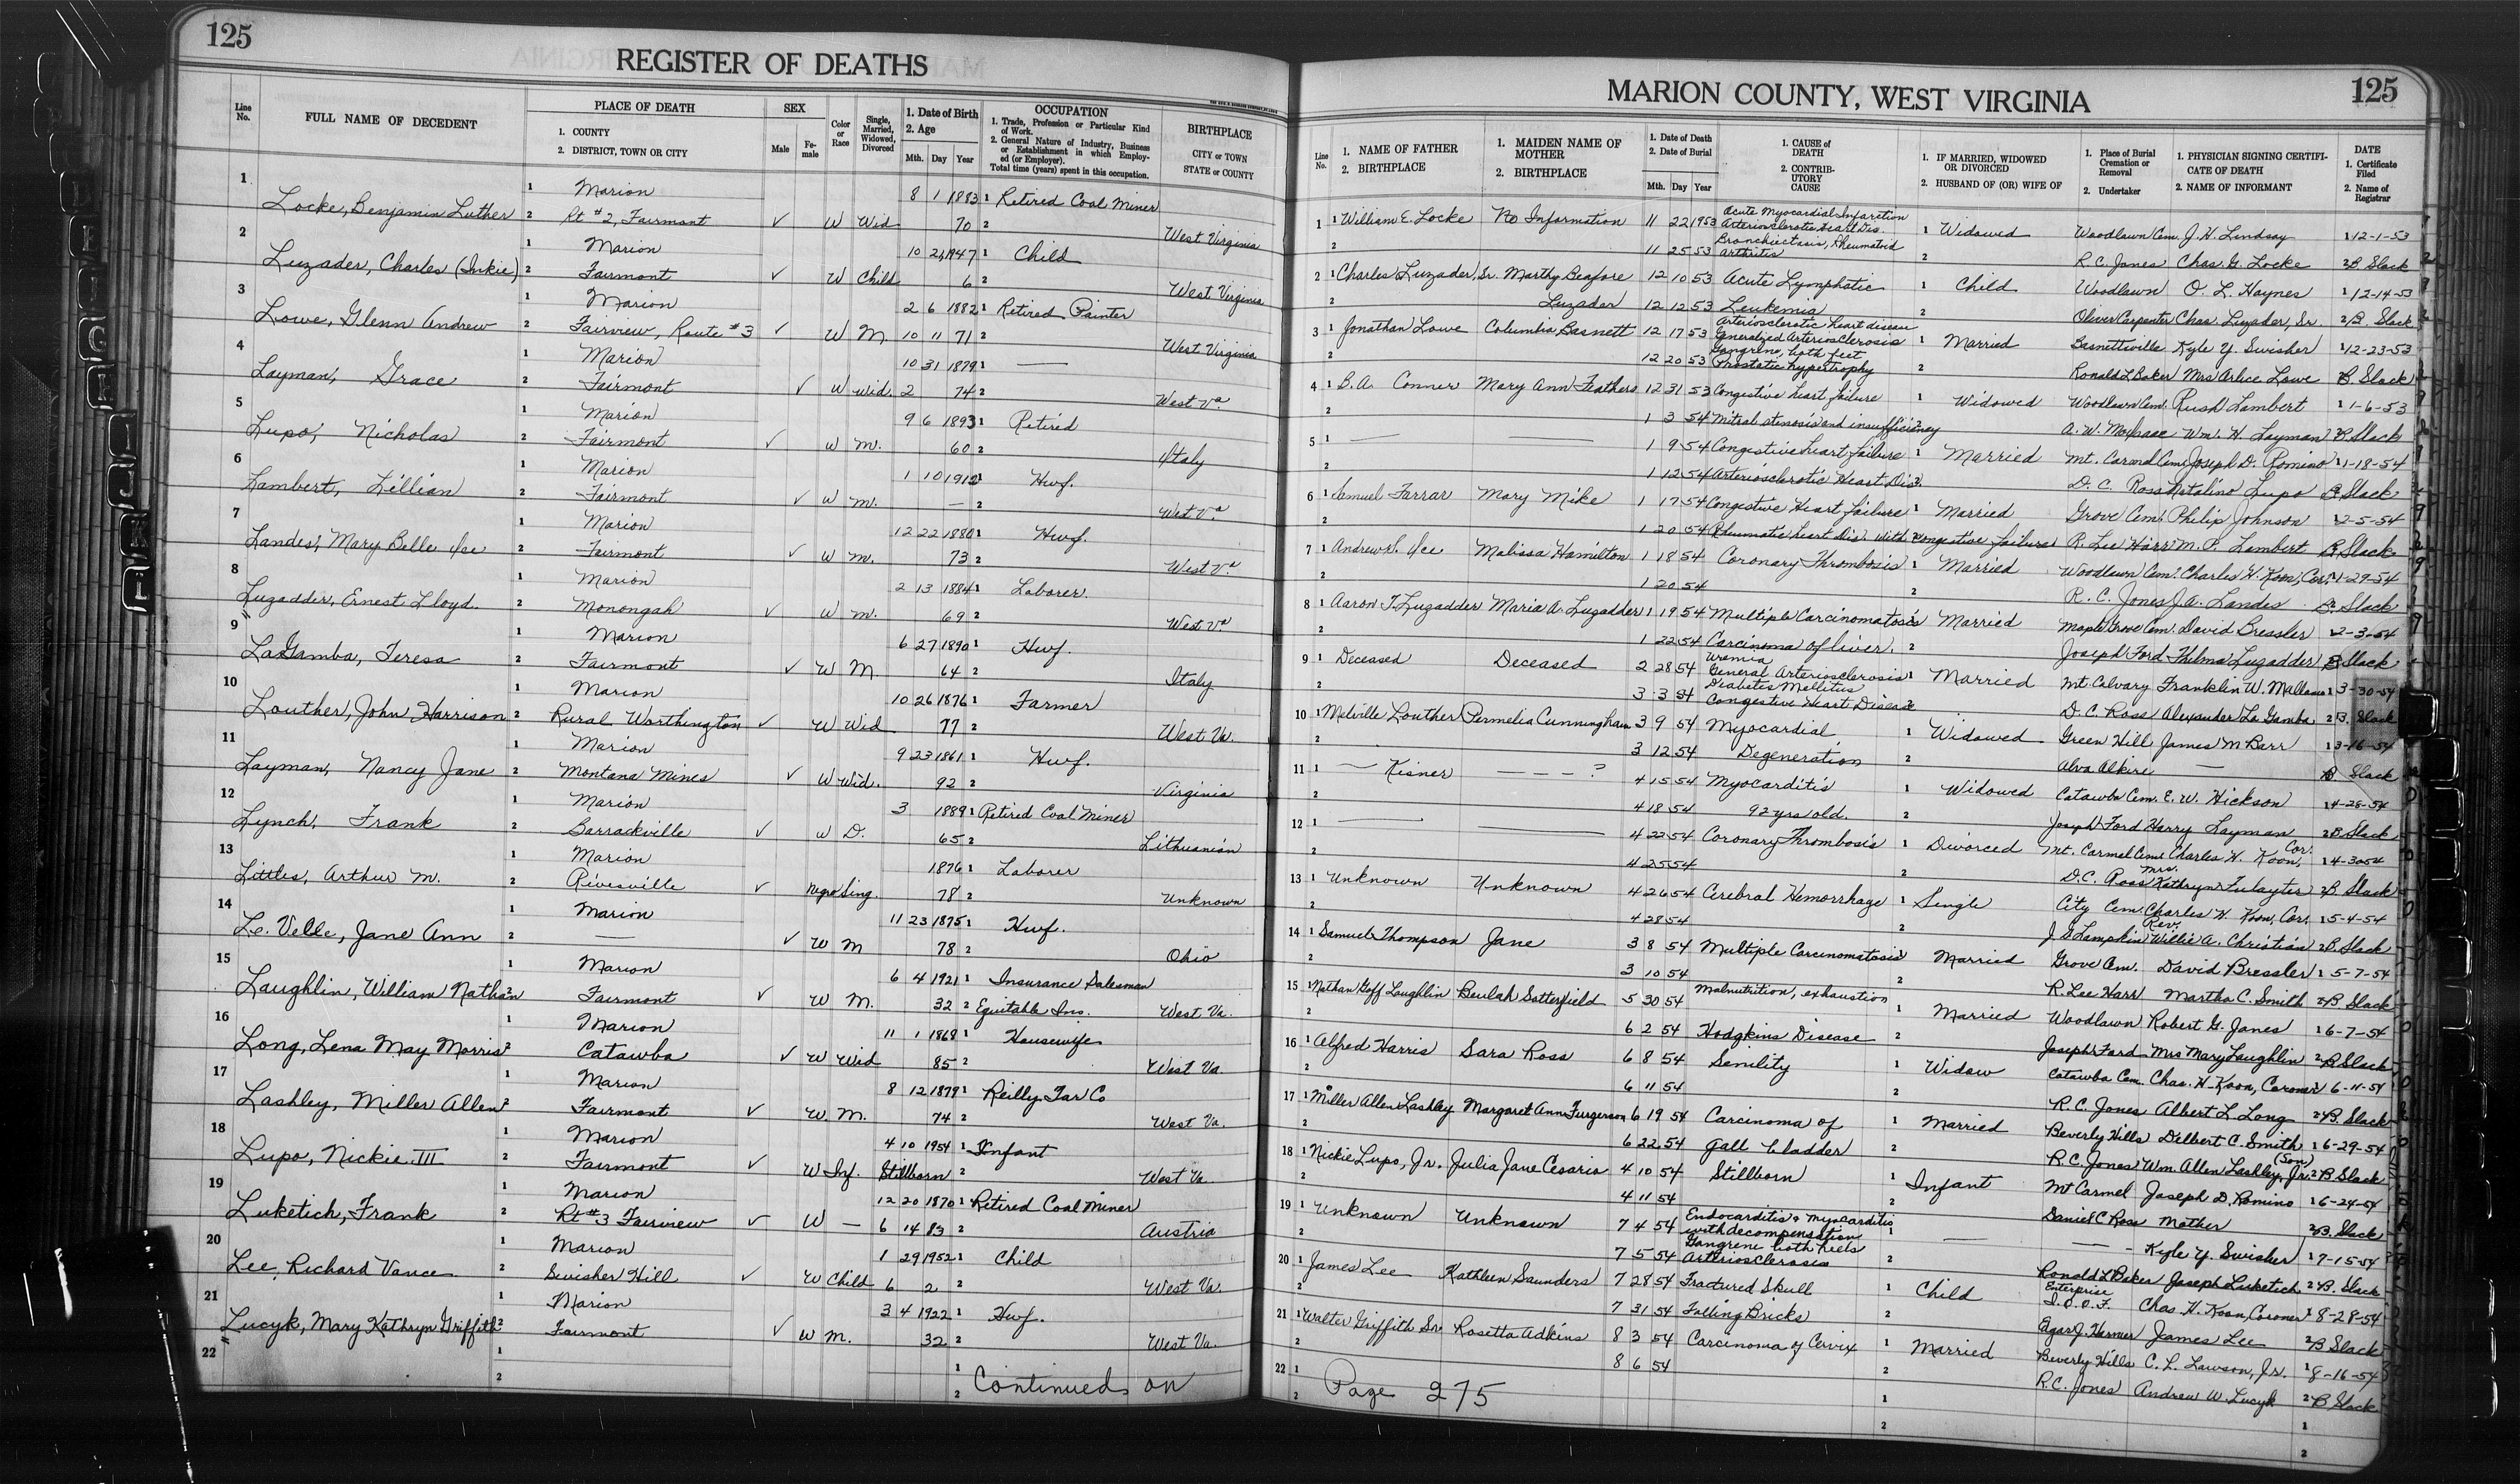 125
REGISTER OF DEATHS
Line No.
FULL NAME OF DECEDENT
PLACE OF DEATH
1. COUNTY
2. DISTRICT, TOWN OR CITY
SEX
Male
Female
Color or Race
Single, Married, Widowed, Divorced
1. Date of Birth
2. Age
Mth. Day Year
OCCUPATION
1. Trade, Profession or Particular Kind of Work.
2. General Nature of Industry, Business or Establishment in which Employed (or Employer).
Total time (years) spent in this occupation.
BIRTHPLACE
CITY or TOWN
STATE or COUNTY
1 Locke, Benjamin Luther 1 Marion 8 1 1883 1 Retired Coal Miner
2 Rt #2, Fairmont ✓ W Wid 70 2 West Virginia
2 Luzader, Charles (Inkie) 1 Marion 10 21 1947 1 Child
2 Fairmont ✓ W Child 6 2 West Virginia
3 Lowe, Glenn Andrew 1 Marion 2 6 1882 1 Retired Painter
2 Fairview, Route #3 ✓ W M 10 11 71 2 West Virginia
4 Layman, Grace 1 Marion 10 31 1879 1 —
2 Fairmont ✓ W Wid. 2 74 2 West Va.
5 Lupo, Nicholas 1 Marion 9 6 1893 1 Retired
2 Fairmont ✓ W M. 60 2 Italy
6 Lambert, Lillian 1 Marion 1 10 1912 1 Hwf.
2 Fairmont ✓ W M. — 2 West Va.
7 Landes, Mary Belle Ice 1 Marion 12 22 1880 1 Hwf.
2 Fairmont ✓ W M. 73 2 West Va.
8 Luzadder, Ernest Lloyd. 1 Marion 2 13 1884 1 Laborer.
2 Monongah ✓ W M. 69 2 West Va
9 LaGamba, Teresa 1 Marion 6 27 1890 1 Hwf.
2 Fairmont ✓ W M 64 2 Italy
10 Louther, John Harrison 1 Marion 10 26 1876 1 Farmer
2 Rural Worthington ✓ W Wid 77 2 West Va.
11 Layman, Nancy Jane 1 Marion 9 23 1861 1 Hwf.
2 Montana Mines ✓ W Wid. 92 2 Virginia
12 Lynch, Frank 1 Marion 3 1889 1 Retired Coal Miner
2 Barrackville ✓ W D. 65 2 Lithuanian
13 Littles, Arthur M. 1 Marion 1876 1 Laborer
2 Rivesville ✓ Negro Sing. 78 2 Unknown
14 Le Velle, Jane Ann 1 Marion 11 23 1875 1 Hwf.
2 — ✓ W M 78 2 Ohio
15 Laughlin, William Nathan 1 Marion 6 4 1921 1 Insurance Salesman
2 Fairmont ✓ W M. 32 2 Equitable Ins. West Va.
16 Long, Lena May Morris 1 Marion 11 1 1868 1 Housewife
2 Catawba ✓ W Wid 85 2 West Va
17 Lashley, Miller Allen 1 Marion 8 12 1879 1 Reilly Tar Co
2 Fairmont ✓ W. M. 74 2 West Va.
18 Lupo, Nickie III 1 Marion 4 10 1954 1 Infant
2 Fairmont ✓ W Inf. Stillborn 2 West Va
19 Luketich, Frank 1 Marion 12 20 1870 1 Retired Coal Miner
2 Rt #3 Fairview ✓ W — 6 14 83 2 Austria
20 Lee, Richard Vance 1 Marion 1 29 1952 1 Child
2 Swisher Hill ✓ W Child 6 2 2 West Va.
21 Lucyk, Mary Kathryn Griffith 1 Marion 3 4 1922 1 Hwf.
2 Fairmont ✓ W M. 32 2 West Va.
22 1 1
2 2 Continued on
MARION COUNTY, WEST VIRGINIA
125
Line No.
1. NAME OF FATHER
2. BIRTHPLACE
1. MAIDEN NAME OF MOTHER
2. BIRTHPLACE
1. Date of Death
2. Date of Burial
Mth. Day Year
1. CAUSE of DEATH
2. CONTRIBUTORY CAUSE
1. IF MARRIED, WIDOWED OR DIVORCED
2. HUSBAND OF (OR) WIFE OF
1. Place of Burial Cremation or Removal
2. Undertaker
1. PHYSICIAN SIGNING CERTIFICATE OF DEATH
2. NAME OF INFORMANT
DATE
1. Certificate Filed
2. Name of Registrar
1 1 William E. Locke No Information 11 22 1953 Acute Myocardial Infarction Arteriosclerotic Heart Dis. 1 Widowed Woodlawn Cem. J. H. Lindsay 1 12-1-53
2 11 25 53 Bronchiectasis, Rheumatoid arthritis 2 R. C. Jones Chas. G. Locke 2 B Slack
2 1 Charles Luzader, Sr. Marthy Beafore 12 10 53 Acute Lymphatic 1 Child Woodlawn O. L. Haynes 1 12-14-53
2 Luzader 12 12 53 Leukemia 2 Oliver Carpenter Chas. Luzader, Sr. 2 B Slack
3 1 Jonathan Lowe Columbia Basnett 12 17 53 Arteriosclerotic heart disease Generalized Arteriosclerosis 1 Married Basnettville Kyle Y. Swisher 1 12-23-53
2 12 20 53 Gangrene, both feet Prostatic hypertrophy 2 Ronald L Baker Mrs Arlice Lowe B Slack
4 1 B. A. Conner Mary Ann Feathers 12 31 53 Congestive heart failure 1 Widowed Woodlawn Cem. Rush Lambert 1 1-6-53
2 1 3 54 Mitral stenosis and insufficiency A. W. Wm. H. Layman B Slack
5 1 — — 1 9 54 Congestive heart failure 1 Married Mt. Carmel Cem. Joseph D. Romino 1 1-18-54
2 1 12 54 Arteriosclerotic Heart Dis. D. C. Ross Natalino Lupo B Slack
6 1 Samuel Farrar Mary Mike 1 17 54 Congestive Heart failure 1 Married Grove Cem. Philip Johnson 1 2-5-54
2 1 20 54 Rheumatic heart Dis. with congestive failure R. Lee Harr M. P. Lambert B Slack
7 1 Andrew J. Ice Malissa Hamilton 1 18 54 Coronary Thrombosis 1 Married Woodlawn Cem. Charles H. Koon, Cor. 1-29-54
2 1 20 54 2 R. C. Jones J. A. Landes B. Slack
8 1 Aaron T. Luzadder Maria A. Luzadder 1 19 54 Multiple Carcinomatosis Married Maple Grove Cem. David Bressler 1 2-3-54
2 1 22 54 Carcinoma of liver. 2 Joseph Ford Thelma Luzadder B Slack
9 1 Deceased Deceased 2 28 54 Uremia General Arteriosclerosis 1 Married Mt. Calvary Franklin W. 1 3-30-54
2 3 3 54 Diabetes Mellitus Congestive Heart Disease D. C. Ross Alexander La Gamba 2 B. Slack
10 1 Melville Louther Permelia Cunningham 3 9 54 Myocardial 1 Widowed Green Hill James M Barr 1 3-16-54
2 3 12 54 Degeneration 2 Alva Alkire — B Slack
11 1 — Kisner — — — ? 4 15 54 Myocarditis 1 Widowed Catawba Cem. E. W. Hickson 1 4-28-54
2 4 18 54 92 yrs old. 2 Joseph Ford Harry Layman 2 B Slack
12 1 — — 4 22 54 Coronary Thrombosis 1 Divorced Mt. Carmel Cem. Charles H. Koon, Cor. 1 4-30 54
2 4 25 54 2 D. C. Ross Mrs. Kathryn Fulayter 2 B Slack
13 1 Unknown Unknown 4 26 54 Cerebral Hemorrhage 1 Single City Cem. Charles H. Koon, Cor. 1 5-4-54
2 4 28 54 2 J. G Lampkin Rev. Willie A. Christian 2 B Slack
14 1 Samuel Thompson Jane 3 8 54 Multiple Carcinomatosis 1 Married Grove Cem. David Bressler 1 5-7-54
2 3 10 54 2 R. Lee Harr Martha C. Smith 2 B Slack
15 1 Nathan Goff Laughlin Beulah Satterfield 5 30 54 Malnutrition, exhaustion 1 Married Woodlawn Robert G. Janes 1 6-7-54
2 6 2 54 Hodgkins Disease 2 Joseph Ford Mrs Mary Laughlin 2 B Slack
16 1 Alfred Harris Sara Ross 6 8 54 Senility 1 Widow Catawba Cem Chas. H. Koon, Coroner 6-11-54
2 6 11 54 2 R. C. Jones Albert L. Long 2 B. Slack
17 1 Miller Allen Lashley Margaret Ann Furgerson 6 19 54 Carcinoma of 1 Married Beverly Hills Delbert C. Smith 1 6-29-54
2 6 22 54 Gall bladder 2 R. C. Jones Wm. Allen Lashley, Jr. (Son) 2 B Slack
18 1 Nickie Lupo, Jr. Julia Jane Cesario 4 10 54 Stillborn 1 Infant Mt Carmel Joseph D. Romino 1 6-24-54
2 4 11 54 2 Daniel C Ross Mother 2 B. Slack
19 1 Unknown Unknown 7 4 54 Endocarditis & Myocarditis with decompensation 1 — — Kyle Y. Swisher 1 7-15-54
2 7 5 54 Gangrene both heels Arteriosclerosis 2 Ronald L Baker Joseph Luketich 2 B. Slack
20 1 James Lee Kathleen Saunders 7 28 54 Fractured Skull 1 Child Enterprise I. O. O. F. Chas. H. Koon, Coroner 1 8-28-54
2 7 31 54 Falling Bricks 2 Harmer James Lee 2 B Slack
21 1 Walter Griffith Sr. Rosetta Adkins 8 3 54 Carcinoma of Cervix 1 Married Beverly Hills C. L. Lawson, Jr. 1 8-16-54
2 8 6 54 2 R. C. Jones Andrew W. Lucyk 2 B Slack
22 1 Page 275 1 1
2 2 2